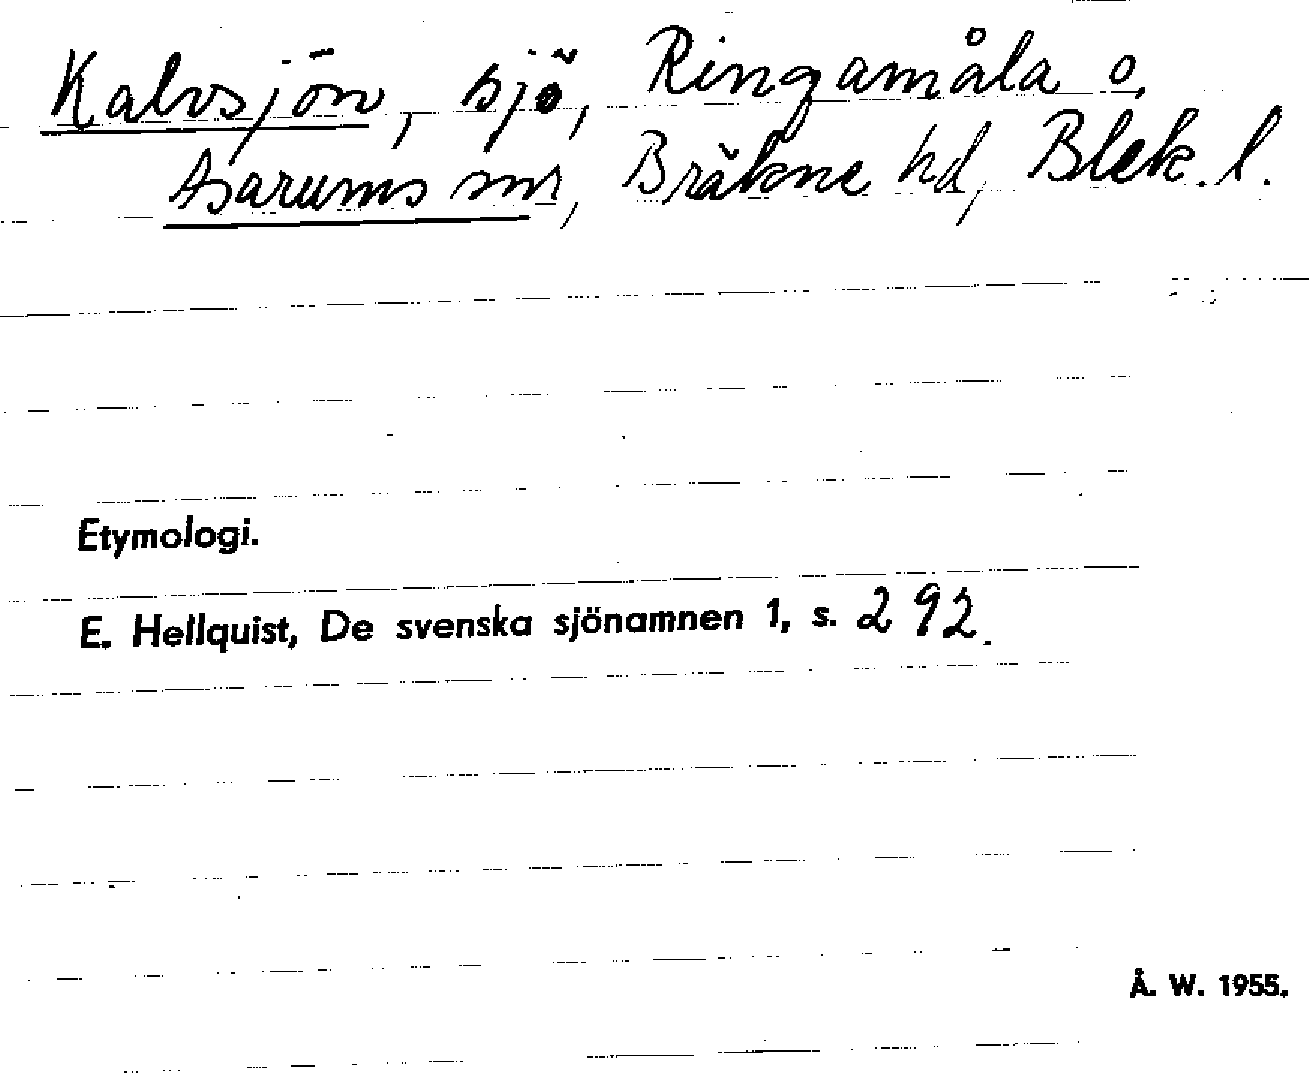 Kalvsjön, sjö, Ringamåla o.
Asarums snr, Bräkne hd, Blek. l.
Etymologi.
E. Hellquist, De svenska sjönamnen 1, s. 292.
Å. W. 1955.